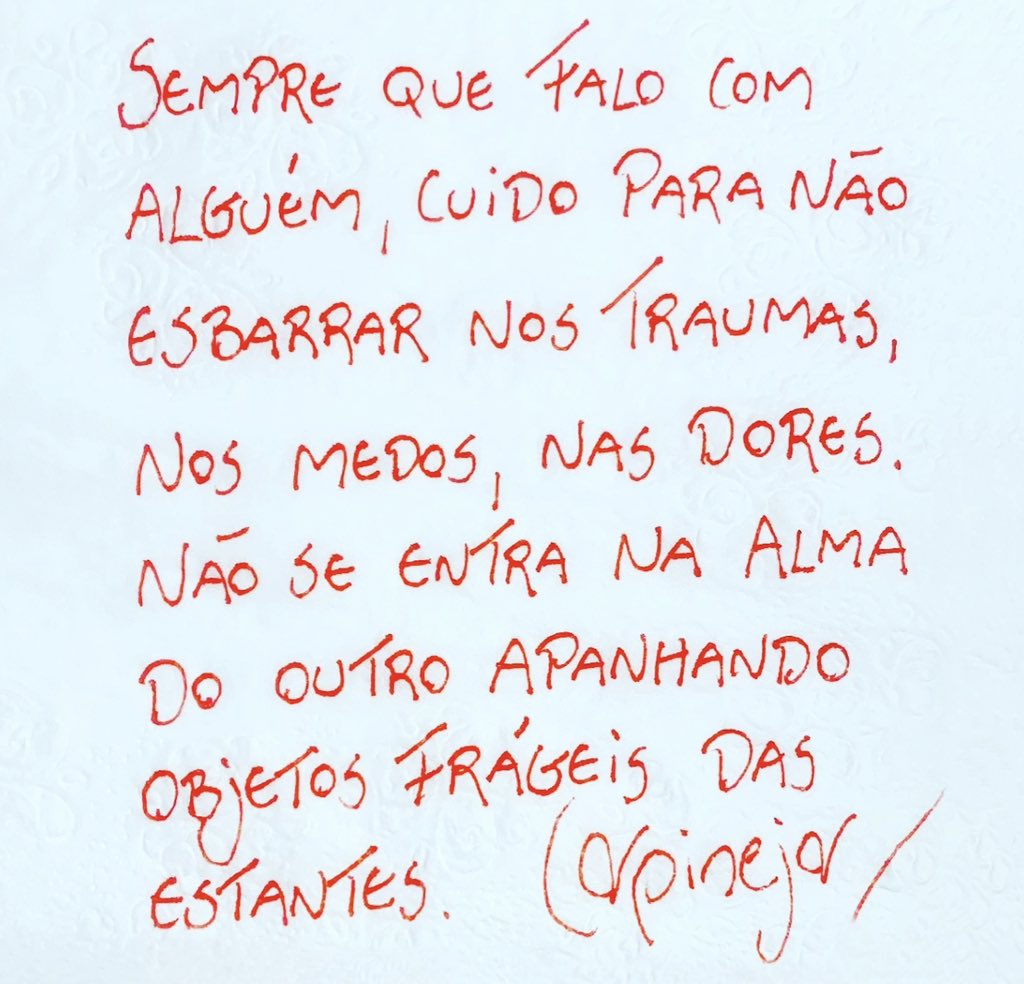 SEMPRE QUE FALO COM
ALGUÉM, CUIDO PARA NÃO
ESBARRAR NOS TRAUMAS,
NOS MEDOS, NAS DORES.
NÃO SE ENTRA NA ALMA
DO OUTRO APANHANDO
OBJETOS FRÁGEIS DAS
ESTANTES. Carpinejar